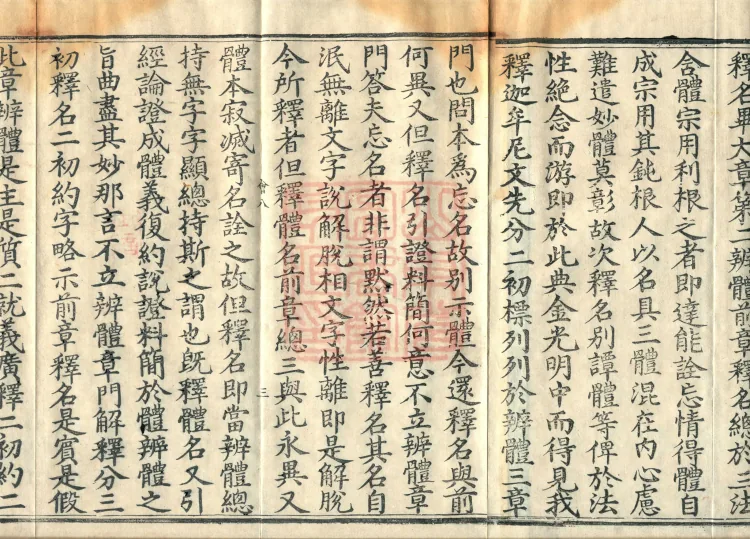 釋名畢大章第二辨體前章釋名總於三法
含體宗用利根之者即達能詮忘情得體自
成宗用其鈍根人以名具三體混在内心慮
難遣妙體莫彰故次釋名別譚體等俾於法
性絶念而游即於此典金光明中而得見我
釋迦牟尼文先分二初標列列於辨體三章
門也問本爲忘名故別示體今還釋名與前
何異又但釋名引證料簡何意不立辨體章
門答夫忘名者非謂默然若善釋名其名自
泯無離文字說解脫相文字性離即是解脫
今所釋者但釋體名前章總三與此永異又
會八
三
體本寂滅寄名詮之故但釋名即當辨體總
持無字字顯總持斯之謂也既釋體名又引
經論證成體義復約説證料簡於體辨體之
旨曲盡其妙那言不立辨體章門解釋分三
初釋名二初約字略示前章釋名是賓是假
此章辨體是主是質二就義廣釋二初約二